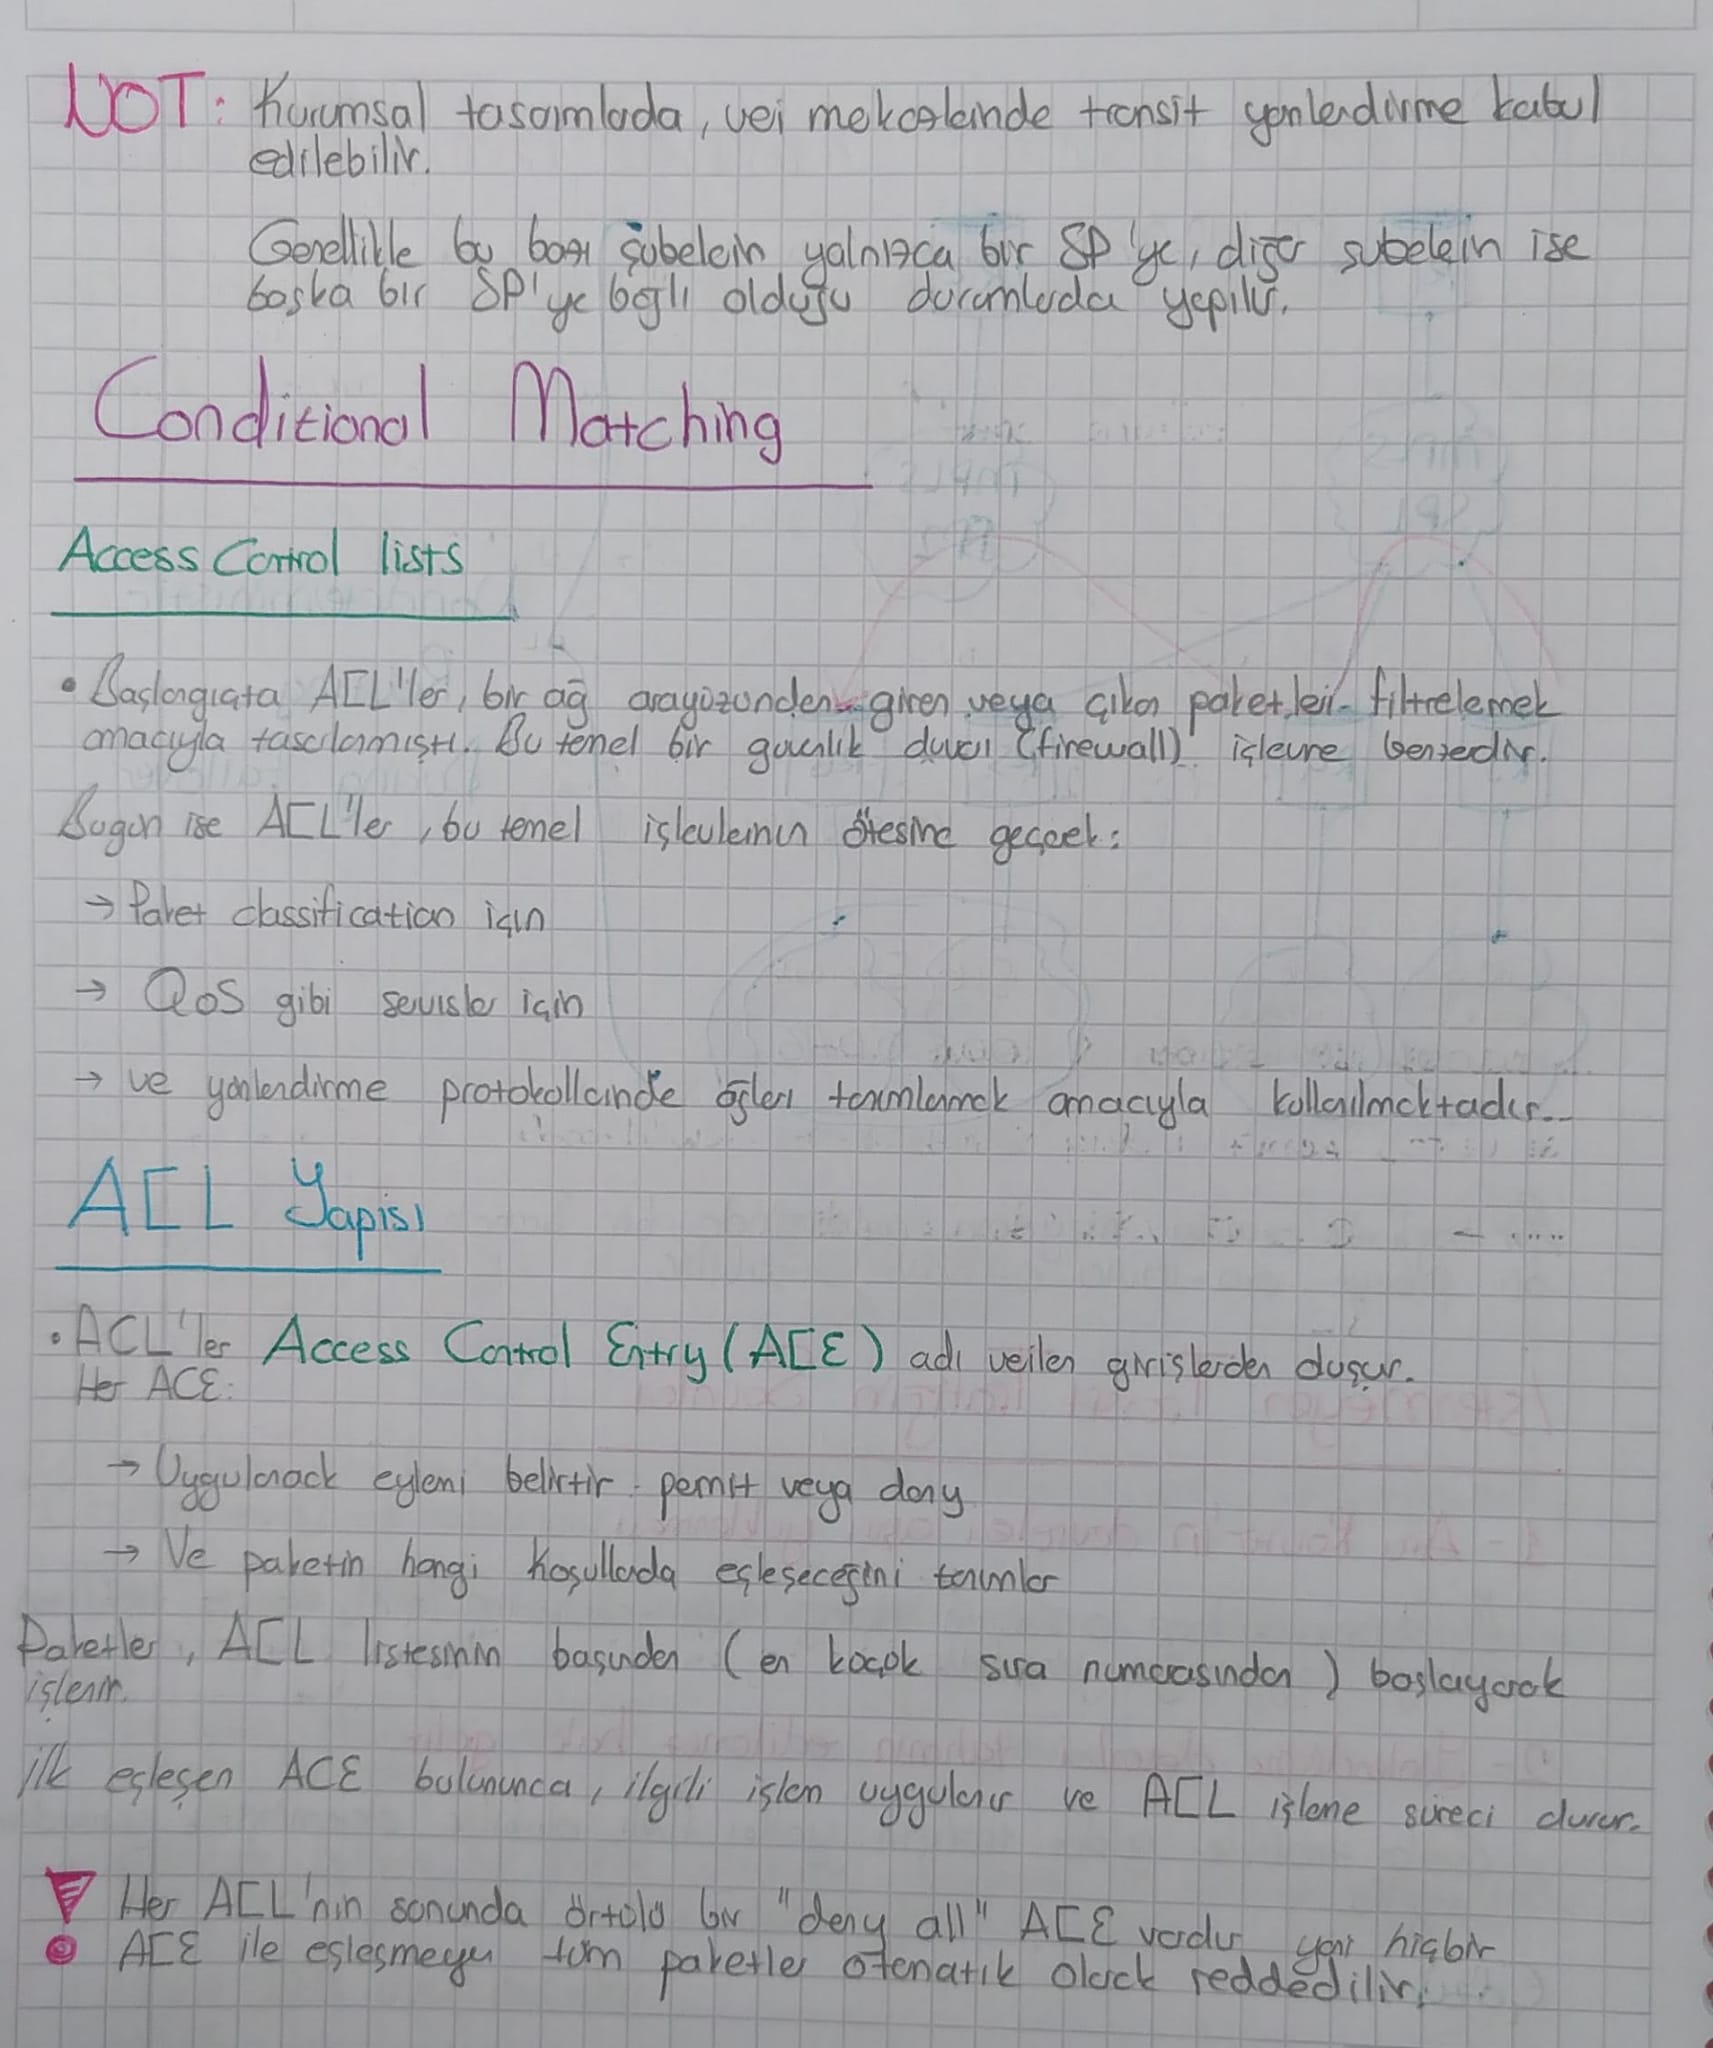 NOT: Kurumsal tasarımlarda, veri merkezlerinde transit yönlendirme kabul
edilebilir.
Genellikle bu bazı şubelerin yalnızca bir SP'ye, diğer şubelerin ise
başka bir SP'ye bağlı olduğu durumlarda yapılır.
Conditional Matching
Access Control lists
• Başlangıçta ACL'ler, bir ağ arayüzünden giren veya çıkan paketleri filtrelemek
amacıyla tasarlanmıştı. Bu temel bir güvenlik duvarı (firewall) işlevine benzerdir.
Bugün ise ACL'ler, bu temel işlevlerinin ötesine geçerek:
→ Paket classification için
→ QoS gibi servisler için
→ ve yönlendirme protokollerinde ağları tanımlamak amacıyla kullanılmaktadır.
ACL Yapısı
• ACL'ler Access Control Entry (ACE) adı verilen girişlerden oluşur.
Her ACE:
→ Uygulanacak eylemi belirtir: permit veya deny
→ Ve paketin hangi koşullarda eşleşeceğini tanımlar
Paketler, ACL listesinin başından (en küçük sıra numarasından) başlayarak
işlenir.
ilk eşleşen ACE bulununca, ilgili işlem uygulanır ve ACL işleme süreci durur.
Her ACL'nin sonunda örtülü bir "deny all" ACE vardır yani hiçbir
ACE ile eşleşmeyen tüm paketler otomatik olarak reddedilir.